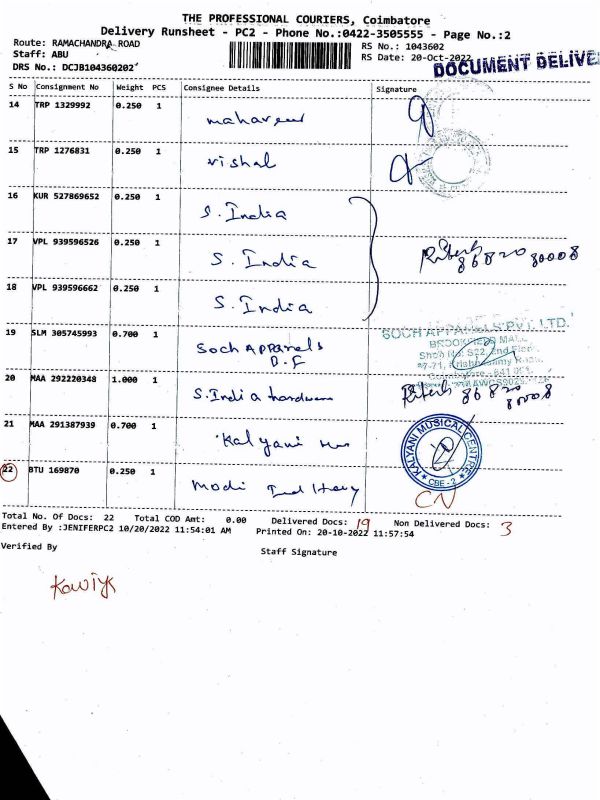 THE PROFESSIONAL COURIERS, Coimbatore
Delivery Runsheet - PC2 - Phone No.:0422-3505555 - Page No.:2
Route: RAMACHANDRA ROAD
RS No.: 1043602
Staff: ABU
RS Date: 20-Oct-2022
DRS No.: DCJB104360202
DOCUMENT DELIVE
S No Consignment No Weight PCS Consignee Details Signature
14 TRP 1329992 0.250 1
15 TRP 1276831 0.250 1 vishal
16 KUR 527869652 0.250 1 S. India
17 VPL 939596526 0.250 1 S. India
Ritesh 86820 80008
18 VPL 939596662 0.250 1 S. India
19 SLM 305745993 0.700 1 Soch APParels
SOCH APPARELS PVT. LTD.
BROOKFIELD MALL
Shop No: S22, 2nd Floor,
20 MAA 292220348 1.000 1 S. India hardware
Ritesh 86820 80008
21 MAA 291387939 0.700 1 Kalyani
KALYANI MUSICAL CENTRE
CBE - 2
22 BTU 169870 0.250 1 Modi
CN
Total No. Of Docs: 22 Total COD Amt: 0.00 Delivered Docs: 19 Non Delivered Docs: 3
Entered By :JENIFERPC2 10/20/2022 11:54:01 AM Printed On: 20-10-2022 11:57:54
Verified By Staff Signature